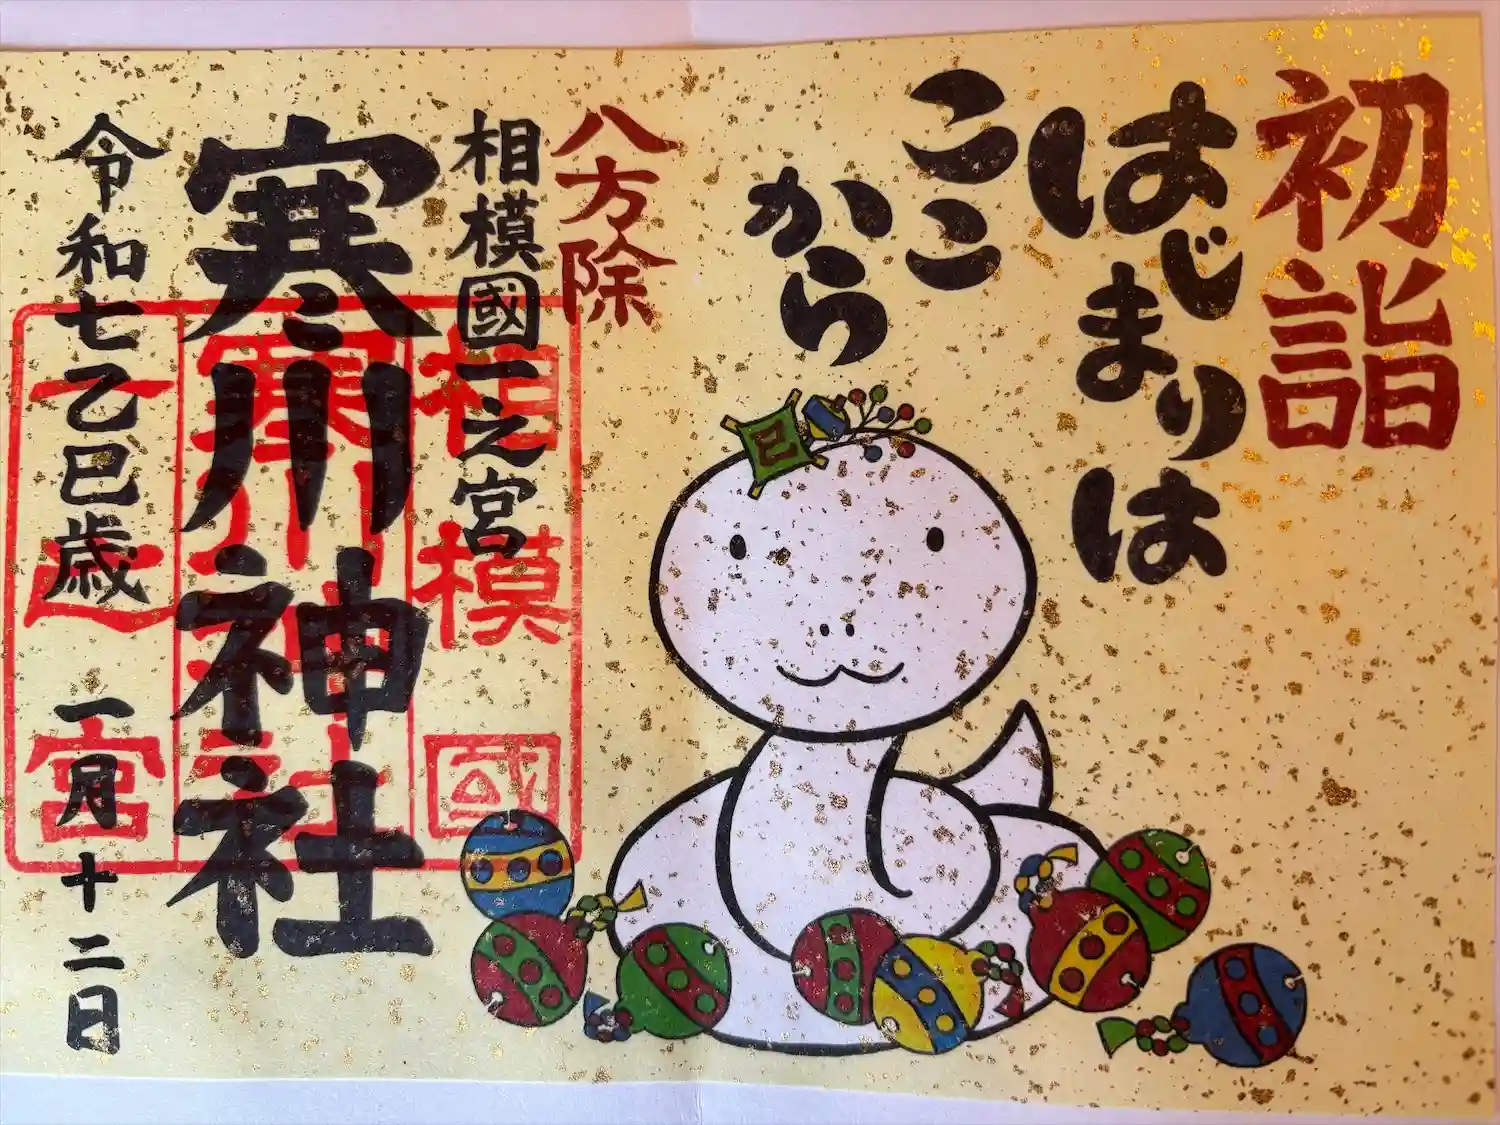 初詣
はじまりは
ここ
から
八方除
相模國一之宮
寒川神社
令和七乙巳歳 一月十二日
巳
相模國
寒川神社
一之宮